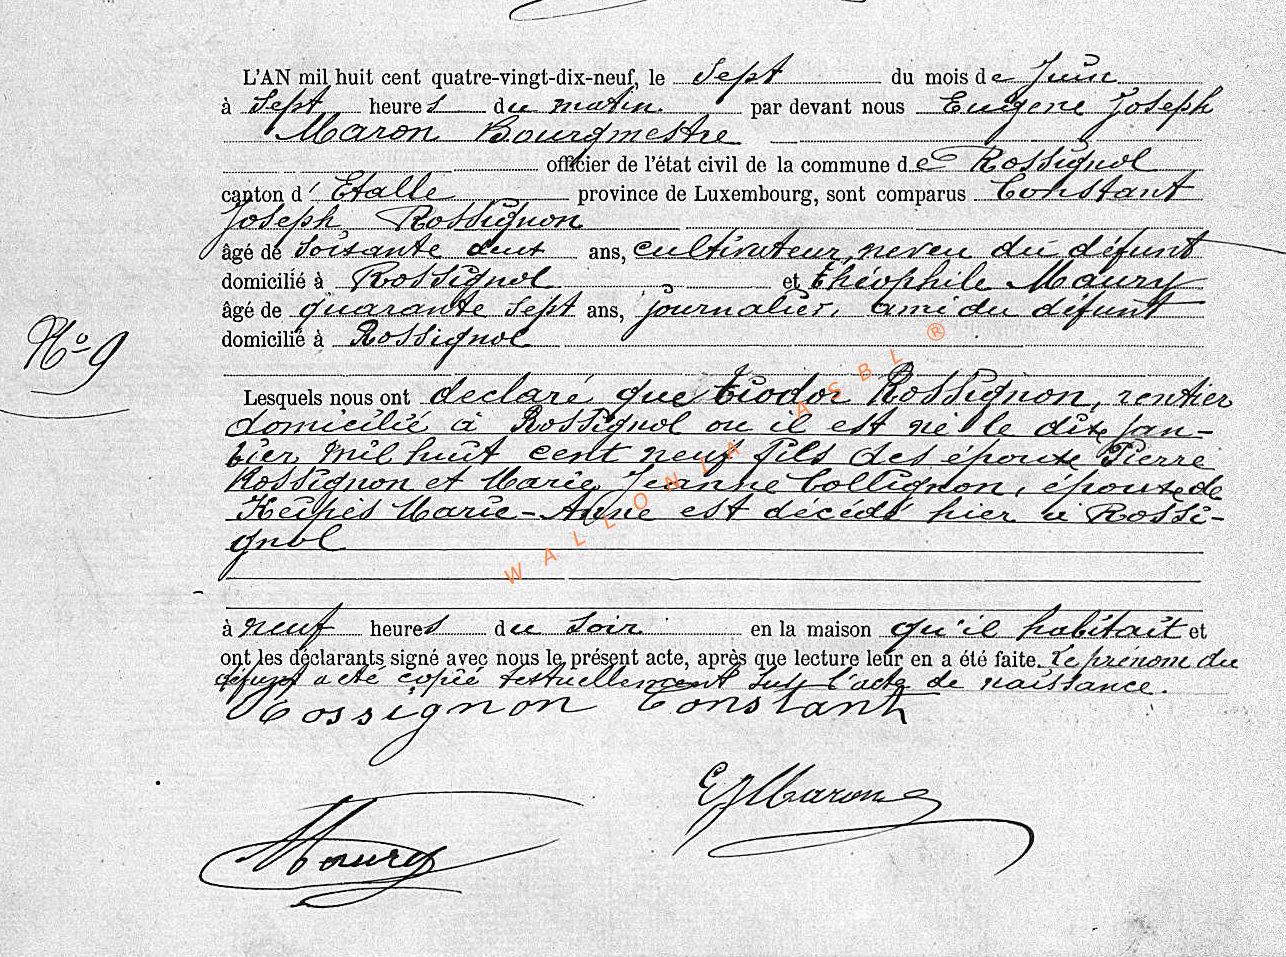 L'AN mil huit cent quatre-vingt-dix-neuf, le Sept du mois de Juin
à Sept heures du matin par devant nous Eugène Joseph
Maron Bourgmestre
officier de l'état civil de la commune de Rossignol
canton d'Etalle province de Luxembourg, sont comparus Constant
Joseph Rossignon
âgé de soixante deux ans, cultivateur, neveu du défunt
domicilié à Rossignol et théophile Maury
âgé de quarante sept ans, journalier, ami du défunt
domicilié à Rossignol
N° 9
Lesquels nous ont declaré que tiodor Rossignon, rentier
domicilié à Rossignol ou il est né le dix jan-
vier mil huit cent neuf fils des époux Pierre
Rossignon et Marie Jeanne Collignon, époux de
Keipes Marie-Anne est décédé hier à Rossi-
gnol
à neuf heures du soir en la maison qu'il habitait et
ont les déclarants signé avec nous le présent acte, après que lecture leur en a été faite. Le prénom du
défunt a été copié textuellement sur l'acte de naissance.
Rossignon Constant
EJMaron
Maury
WALLONIA ASBL ®